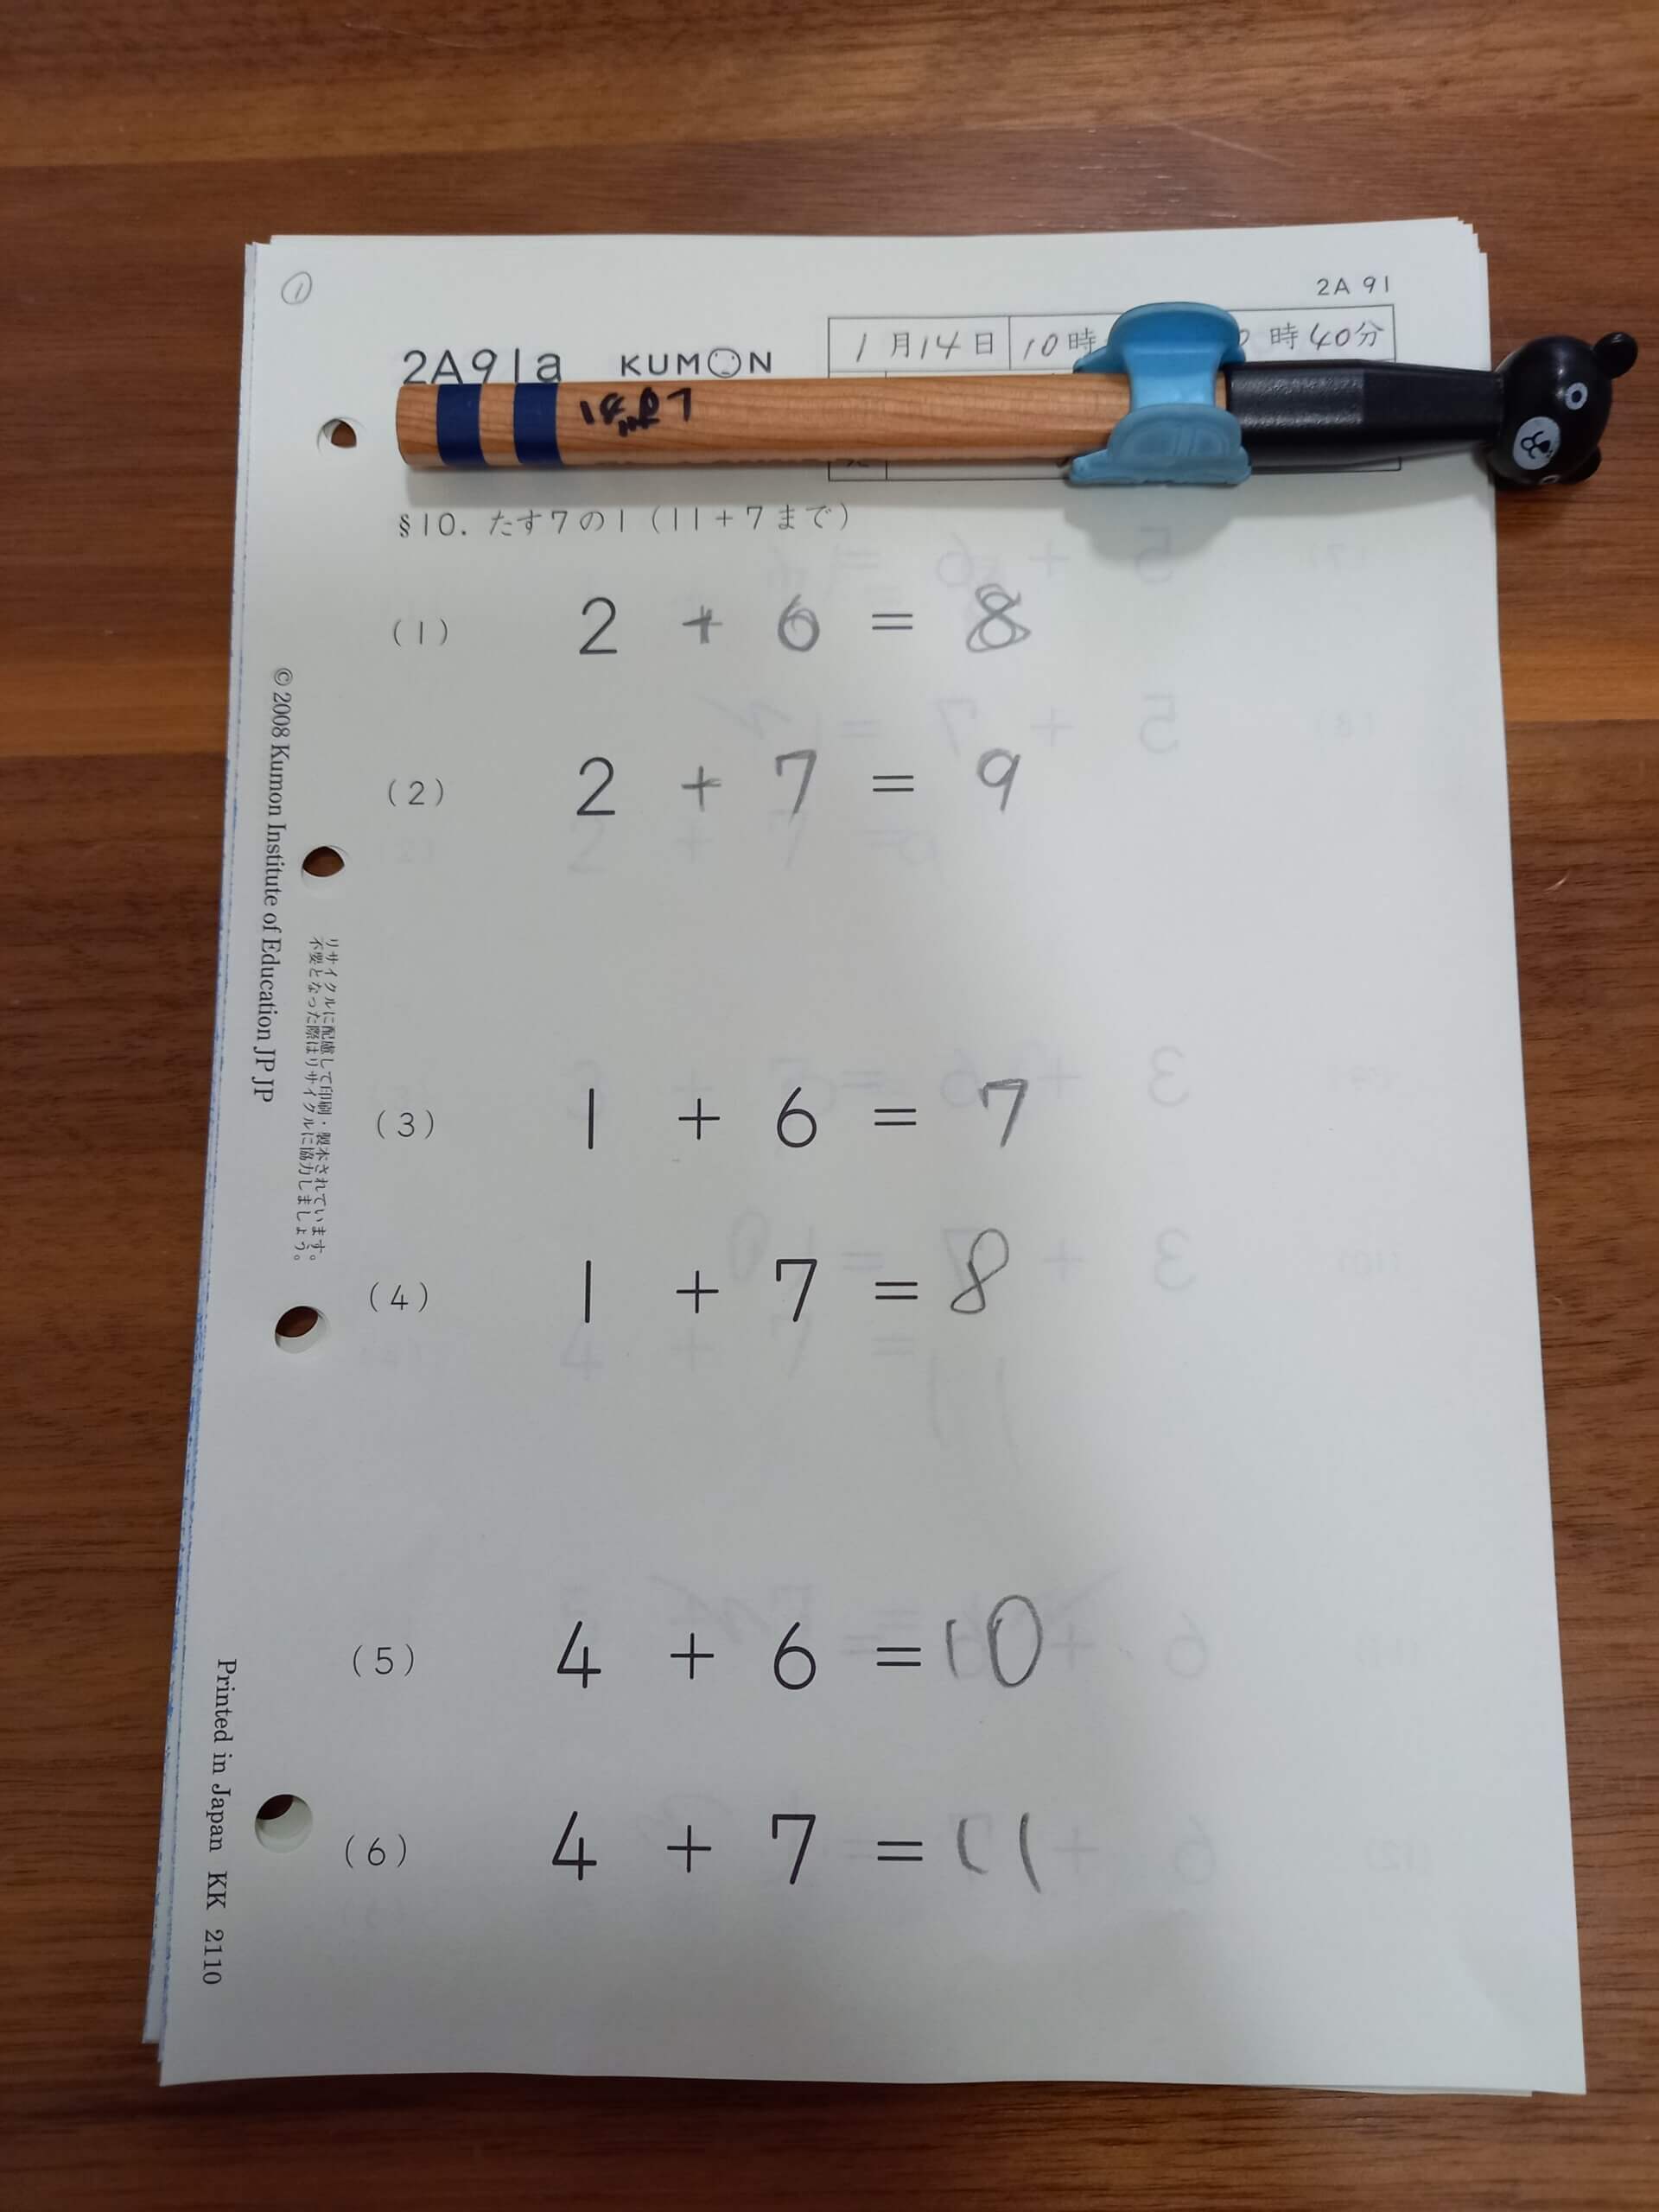 ①
2A 91
1月14日 10時 時40分
2A91a KUMON
§10. たす7の1(11+7まで)
(1) 2 + 6 = 8
(2) 2 + 7 = 9
(3) 1 + 6 = 7
(4) 1 + 7 = 8
(5) 4 + 6 = 10
(6) 4 + 7 = 11
© 2008 Kumon Institute of Education JP JP
リサイクルに配慮して印刷・製本されています。
不要となった際はリサイクルに協力しましょう。
Printed in Japan KK 2110